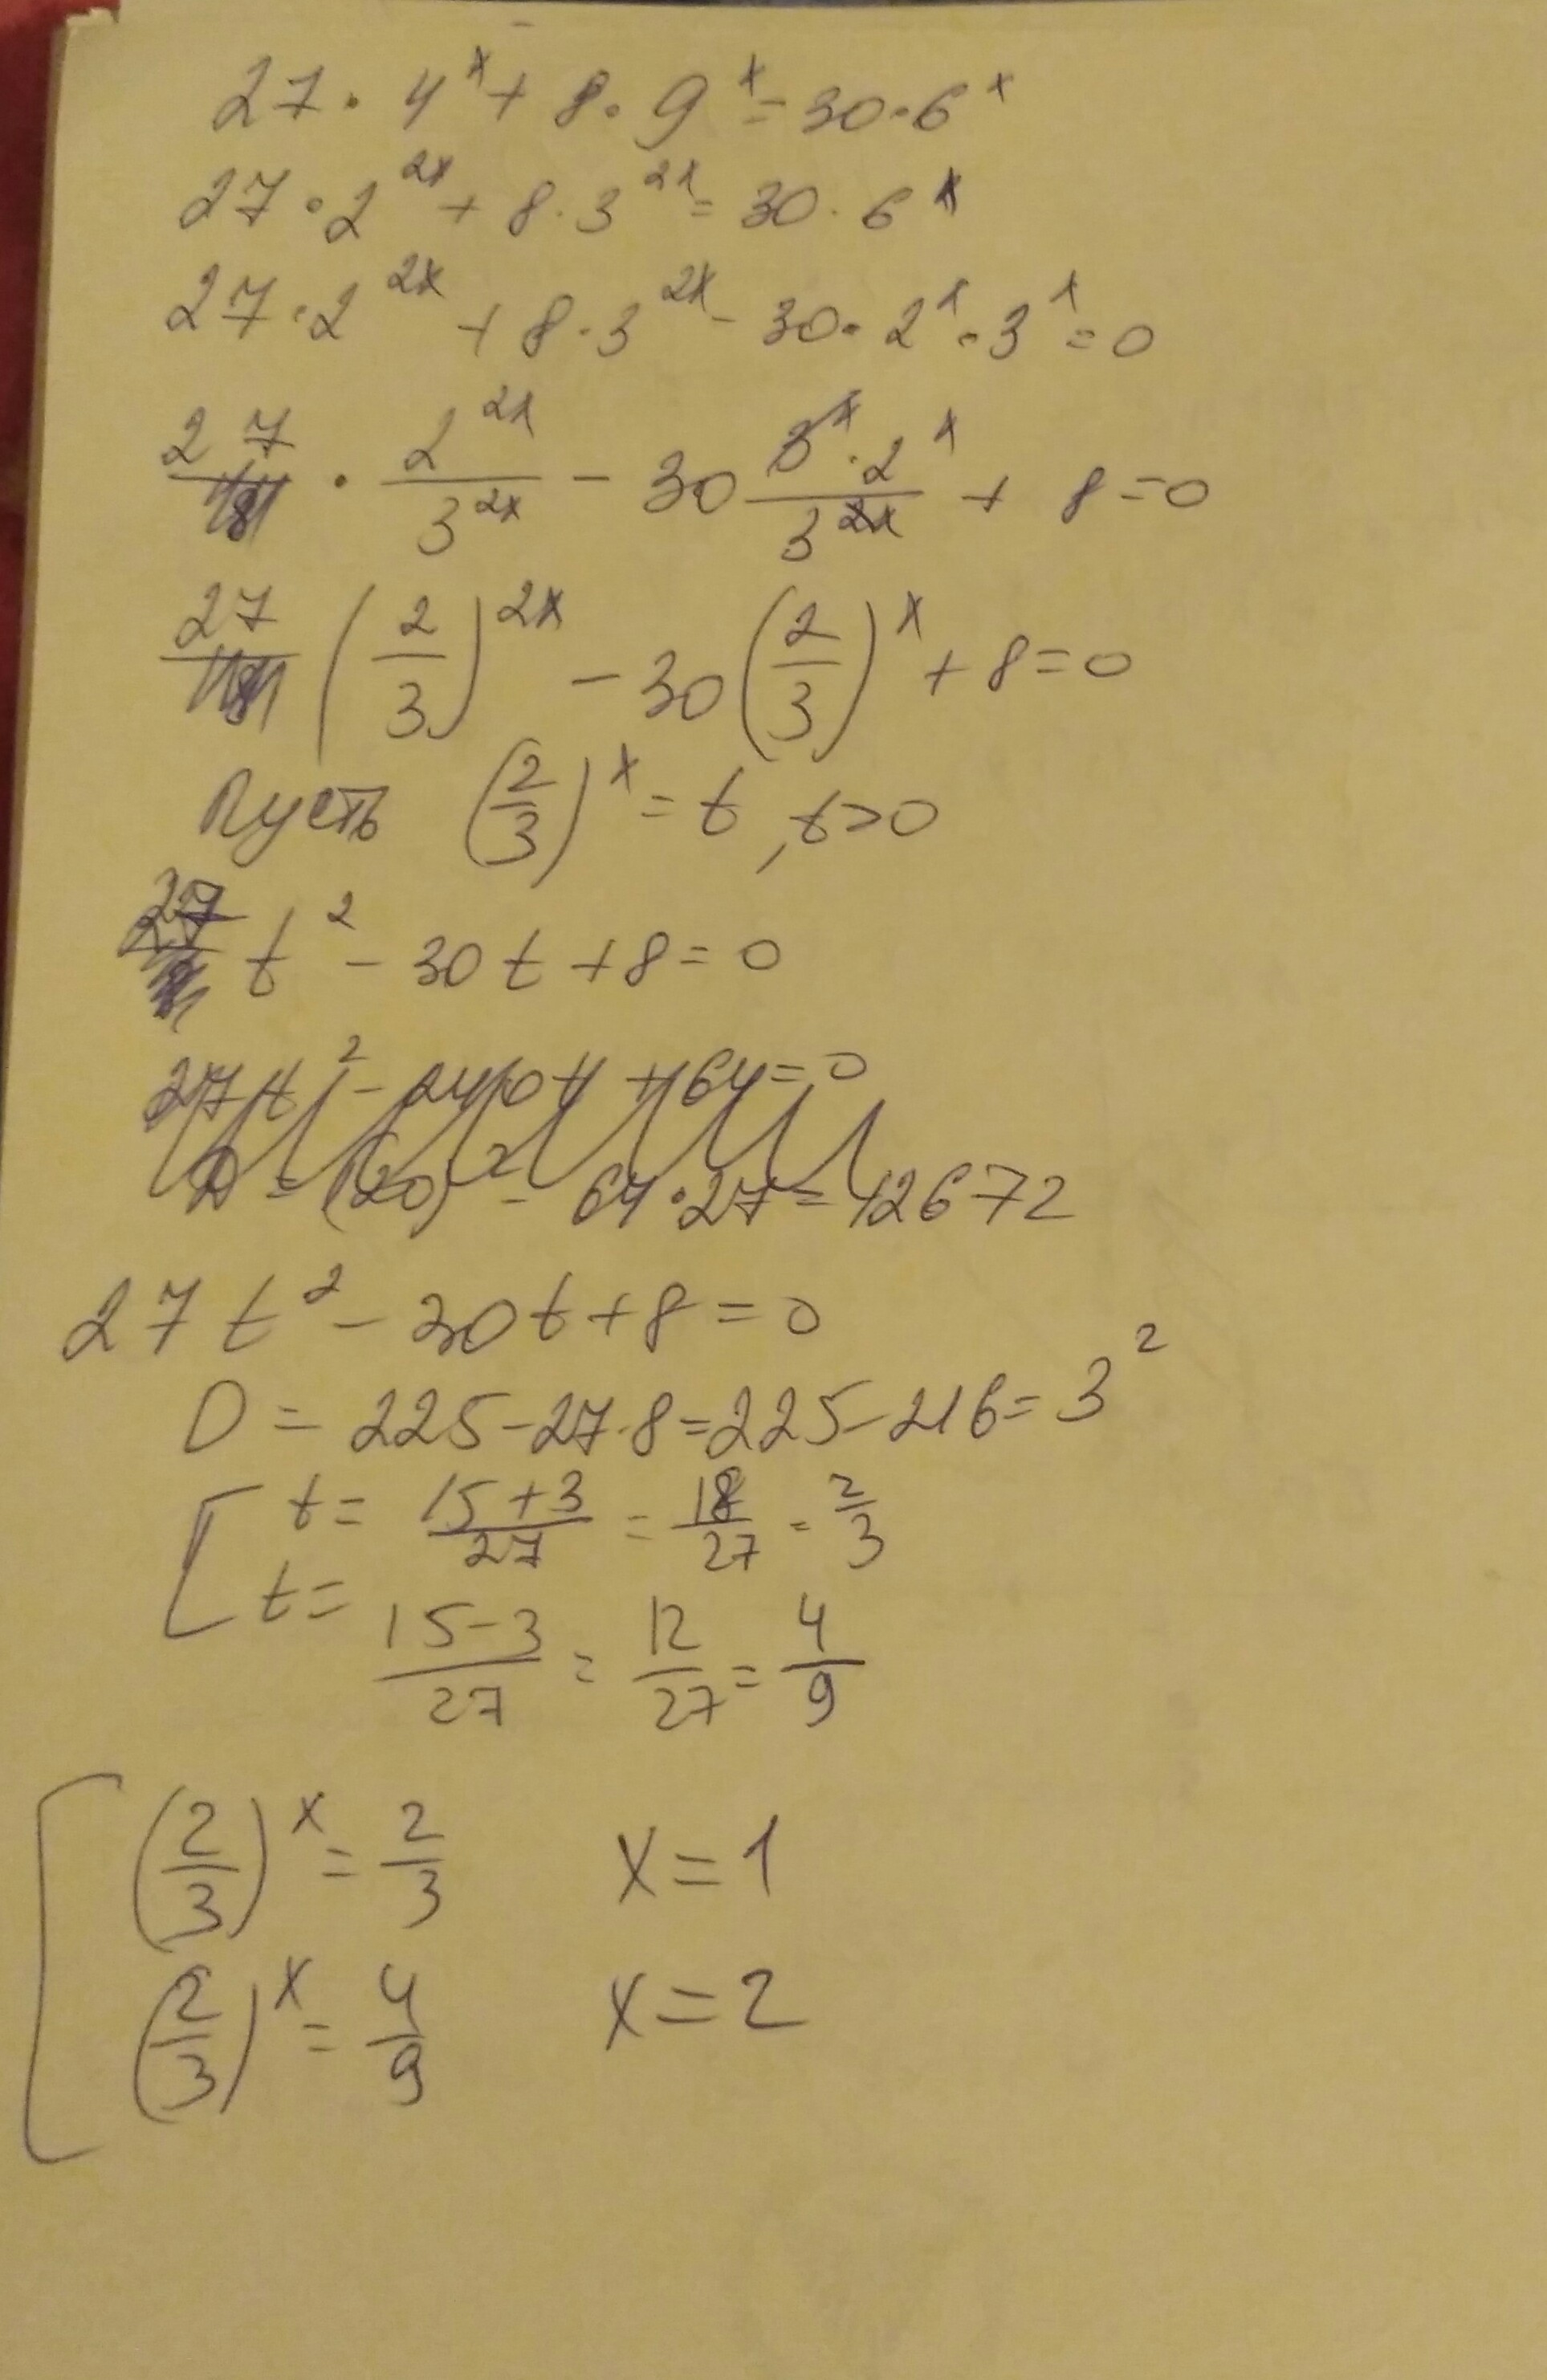 27 · 4^x + 8 · 9^x = 30 · 6^x
27 · 2^2x + 8 · 3^2x = 30 · 6^x
27 · 2^2x + 8 · 3^2x - 30 · 2^x · 3^x = 0
27 · 2^2x/3^2x - 30 3^x · 2^x/3^2x + 8 = 0
27 (2/3)^2x - 30 (2/3)^x + 8 = 0
Пусть (2/3)^x = t, t > 0
27 t^2 - 30t + 8 = 0
27t^2 - 240t + 64 = 0
D = (120)^2 - 64 · 27 = 12672
27t^2 - 30t + 8 = 0
D = 225 - 27 · 8 = 225 - 216 = 3^2
[ t = 15+3/27 = 18/27 = 2/3
t = 15-3/27 = 12/27 = 4/9
[ (2/3)^x = 2/3 x = 1
(2/3)^x = 4/9 x = 2